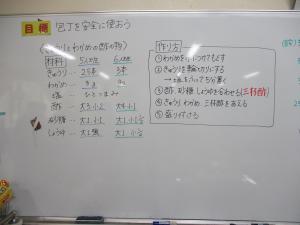 目標 包丁を安全に使おう
(きゅうりとわかめの酢の物)
材料 5人分 6人分
きゅうり… 2.5本 3本
わかめ…
塩… ひとつまみ
酢… 大3 小2 大4 小1
砂糖… 大1 小1 大1 小1
しょうゆ… 大1 大1
作り方
① わかめを水につけてもどす
② きゅうりを輪切りにする
→ 塩をふって5分置く
③ 酢、砂糖、しょうゆを合わせる(三杯酢)
④ きゅうり、わかめ、三杯酢をあえる
⑤ 盛り付ける